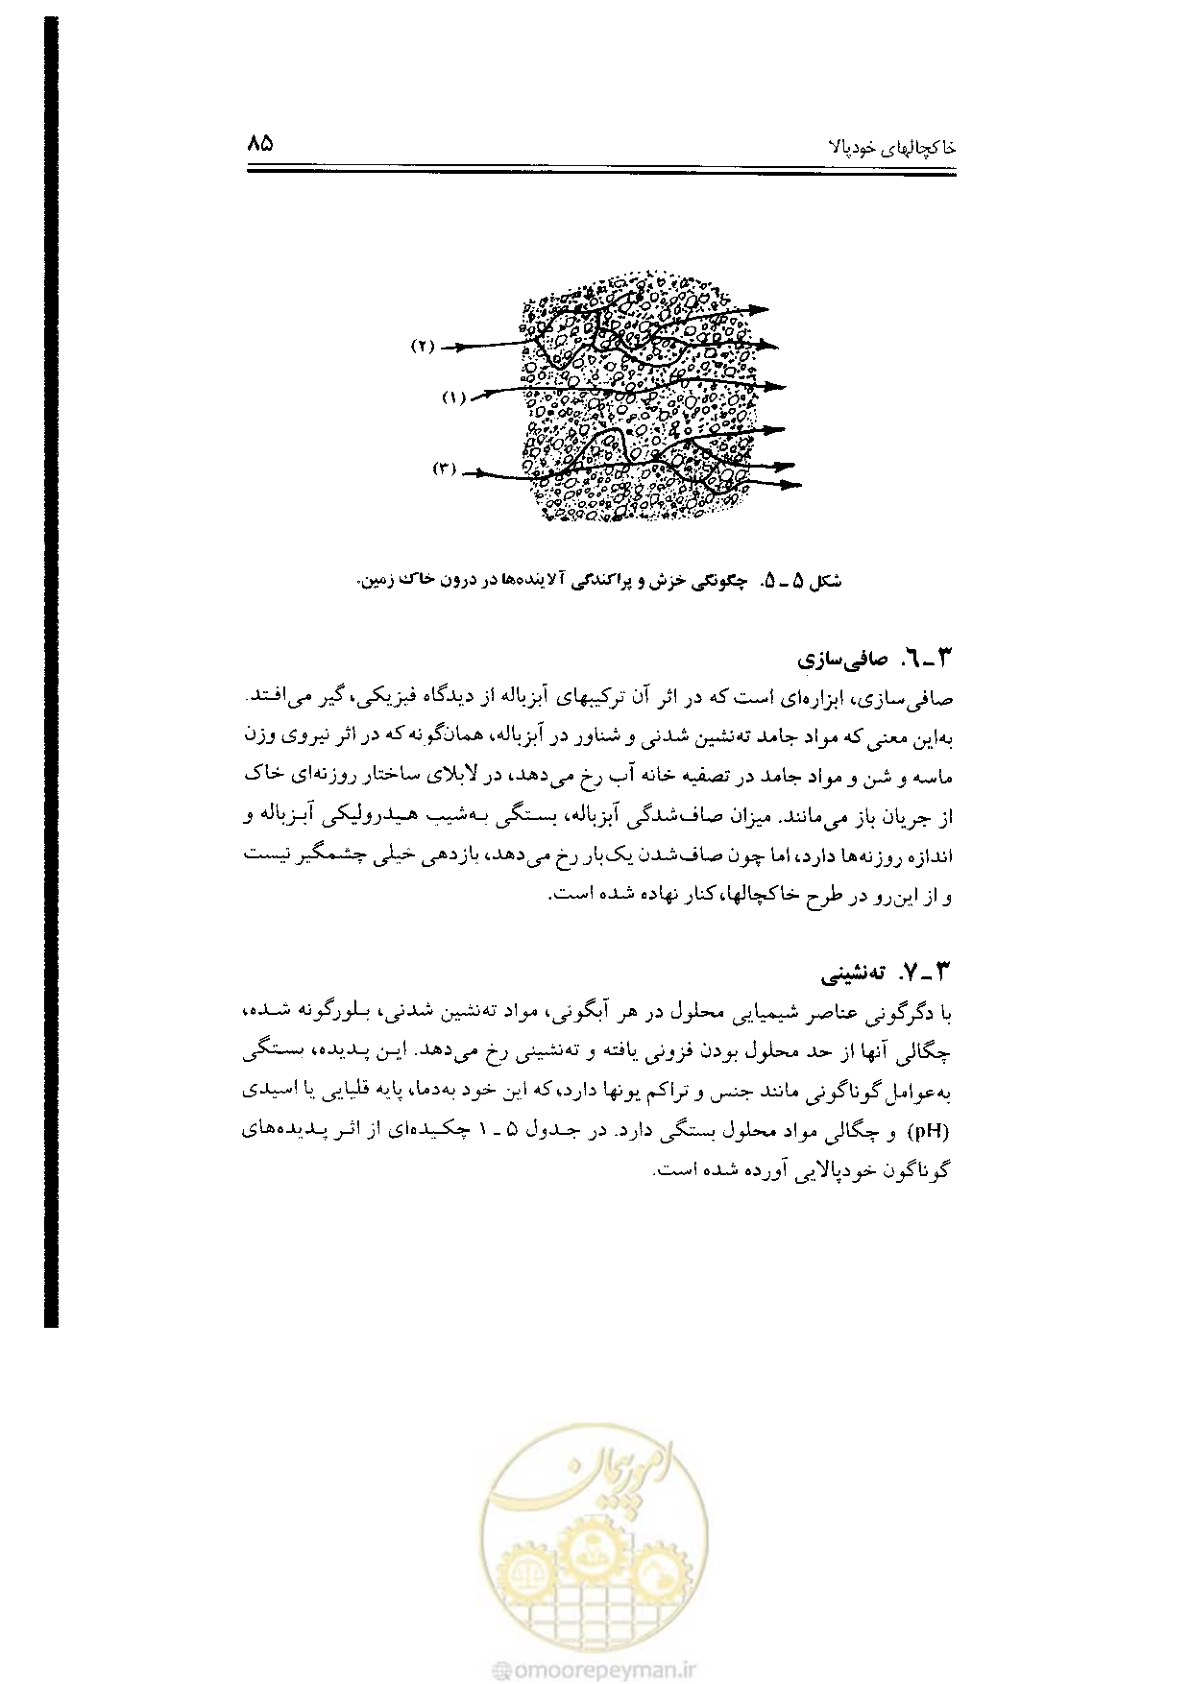 خاکچالهای خودپالا ۸۵
(۲)
(۱)
(۳)
شکل ۵ ـ ۵. چگونگی خزش و پراکندگی آلاینده‌ها در درون خاک زمین.
۳ـ۶. صافی‌سازی
صافی‌سازی، ابزاره‌ای است که در اثر آن ترکیبهای آبزباله از دیدگاه فیزیکی، گیر می‌افتد.
به‌این معنی که مواد جامد ته‌نشین شدنی و شناور در آبزباله، همان‌گونه که در اثر نیروی وزن
ماسه و شن و مواد جامد در تصفیه خانه آب رخ می‌دهد، در لابلای ساختار روزنه‌ای خاک
از جریان باز می‌مانند. میزان صاف‌شدگی آبزباله، بستگی به‌شیب هیدرولیکی آبزباله و
اندازه روزنه‌ها دارد، اما چون صاف‌شدن یک‌بار رخ می‌دهد، بازدهی خیلی چشمگیر نیست
و از این‌رو در طرح خاکچالها، کنار نهاده شده است.
۳ـ۷. ته‌نشینی
با دگرگونی عناصر شیمیایی محلول در هر آبگونی، مواد ته‌نشین شدنی، بلورگونه شده،
چگالی آنها از حد محلول بودن فزونی یافته و ته‌نشینی رخ می‌دهد. این پدیده، بستگی
به‌عوامل گوناگونی مانند جنس و تراکم یونها دارد، که این خود به‌دما، پایه قلیایی یا اسیدی
(pH) و چگالی مواد محلول بستگی دارد. در جدول ۵ ـ ۱ چکیده‌ای از اثر پدیده‌های
گوناگون خودپالایی آورده شده است.
امور پیمان
@omoorepeyman.ir